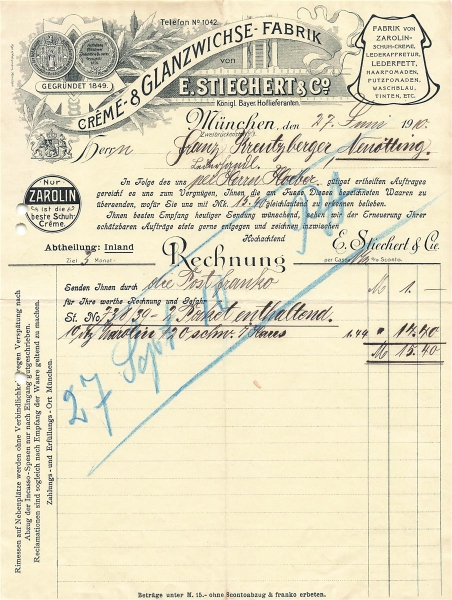 Telefon No 1042.
CRÈME- & GLANZWICHSE-FABRIK
von
E. STIECHERT & Co.
Königl. Bayer. Hoflieferanten.
GEGRÜNDET 1849.
FABRIK VON
ZAROLIN-
SCHUH-CRÈME,
LEDERAPPRETUR,
LEDERFETT,
HAARPOMADEN,
PUTZPOMADEN,
WASCHBLAU,
TINTEN, ETC.
München, den 27. Juni 1910.
Zweibrückenstr.
Herrn Franz Kreutzberger Neuötting.
Nur
ZAROLIN
ist die
beste Schuh-
Crème.
In Folge des uns per Herrn Huber, gütigst ertheilten Auftrages
gereicht es uns zum Vergnügen, Ihnen die am Fusse Dieses bezeichneten Waaren zu
übersenden, wofür Sie uns mit Mk. 15.40 gleichlautend zu erkennen belieben.
Ihnen besten Empfang heutiger Sendung wünschend, sehen wir der Erneuerung Ihrer
schätzbaren Aufträge stets gerne entgegen und zeichnen inzwischen
Hochachtend
E. Stiechert & Cie.
Abtheilung: Inland
Rechnung
Ziel 3 Monat:
per Cassa % Sconto.
Senden Ihnen durch die Post franko M 1.—
für Ihre werthe Rechnung und Gefahr
St. No 738/39 - 2 Packet enthaltend.
Zarolin 120 schw. 1.44 " 14.40
M 15.40
27 Sept 10
Rimessen auf Nebenplätze werden ohne Verbindlichkeit wegen Verspätung nach
Abzug der Incasso-Spesen nur nach Eingang gutgeschrieben
Reclamationen sind sogleich nach Empfang der Waare geltend zu machen.
Zahlungs- und Erfüllungs-Ort München.
Beträge unter M. 15.- ohne Scontoabzug & franko erbeten.